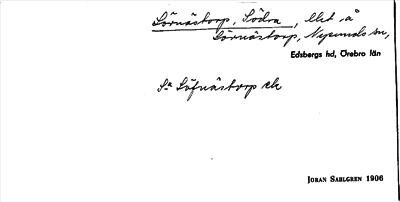 Sörnästorp, Södra, llet. å
Sörnästorp, Nysunds sn,
Edsbergs hd, Örebro län
Sa Söfnästorp ek
JOHAN SAHLGREN 1906